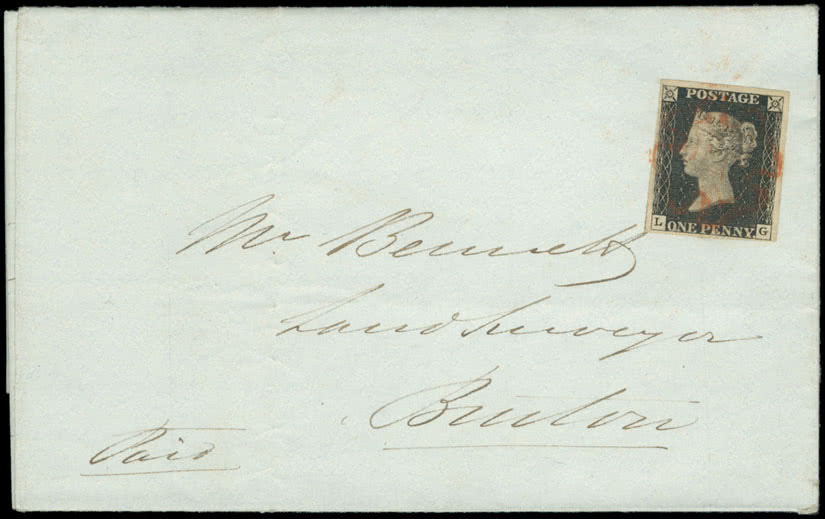 POSTAGE
L ONE PENNY G
Mr. Bennett
Land Surveyor
Bruton
Paid